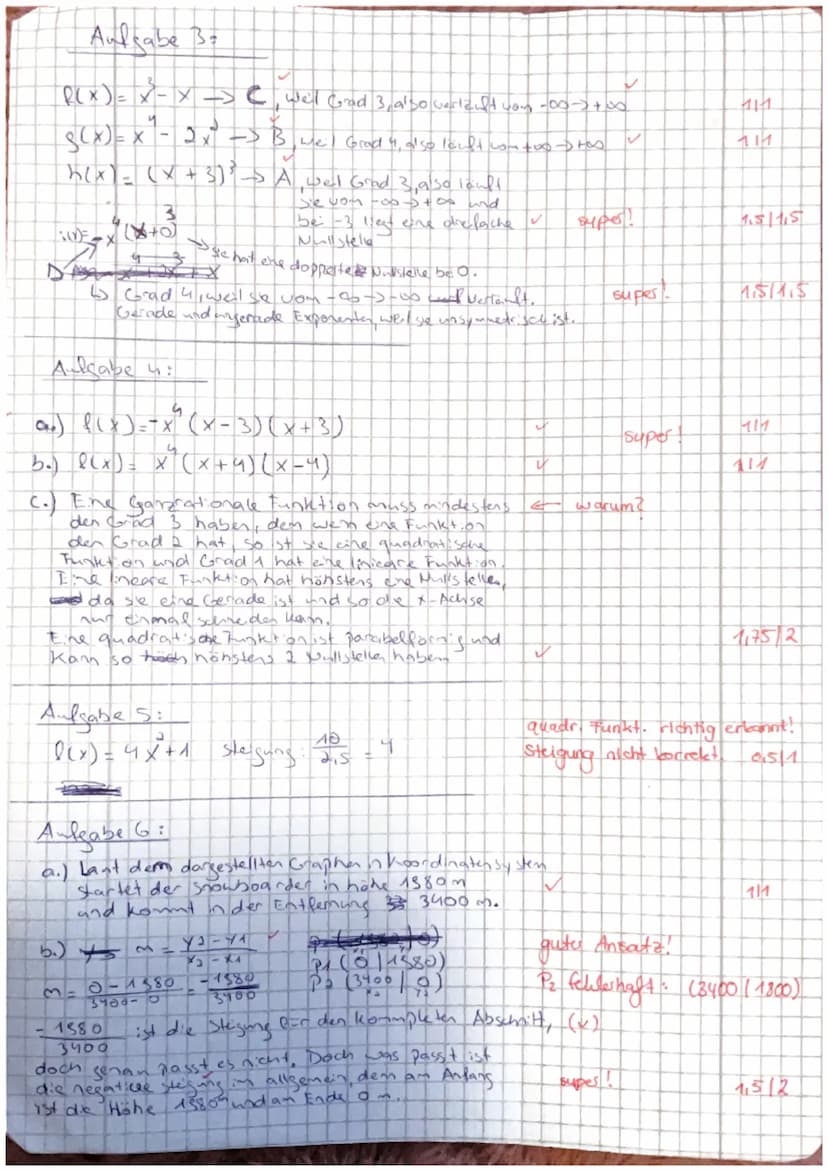 Aufgabe 3:
f(x) = x³ - x → C, weil Grad 3, also verläuft von -∞ → +∞ 1/1
g(x) = x⁴ - 2x² → B, weil Grad 4, also läuft von +∞ → +∞ ✓ 1/1
h(x) = (x + 3)³ → A, weil Grad 3, also läuft
sie von -∞ → +∞ und
bei -3 liegt eine dreifache ✓ super! 1,5/1,5
Nullstelle
i(x) = -x⁴ (x+0)³
→ sie hat eine doppelte Nullstelle bei 0.
D
↳ Grad 4, weil sie von -∞ → -∞ verläuft. super! 1,5/1,5
Gerade und ungerade Exponenten, weil sie unsymmetrisch ist.
Aufgabe 4:
a.) f(x) = -x⁴ (x-3)(x+3) ✓ super! 1/1
b.) f(x) = x⁴ (x+4)(x-4) ✓ 1/1
c.) Eine Ganzrationale Funktion muss mindestens ← warum?
den Grad 3 haben, denn wenn eine Funktion
den Grad 2 hat, so ist sie eine quadratische
Funktion und Grad 1 hat eine linieare Funktion.
Eine lineare Funktion hat höhstens eine Nullstellen,
da sie eine Gerade ist und so die x-Achse
nur einmal schneiden kann.
Eine quadratische Funktion ist parabelförmig und 1,75/2
kann so höhstens 2 Nullstellen haben ✓
Aufgabe 5:
quadr. Funkt. richtig erkannt!
f(x) = 4x² + 1 Steigung: 10/2,5 = 4 Steigung nicht korrekt. 0,5/1
Aufgabe 6:
a.) Laut dem dargestellten Graphen in Koordinatensystem
startet der Snowboarder in höhe 1980 m ✓ 1/1
und kommt in der Entfernung 3400 m.
b.) m = y2 - y1 / x2 - x1 ✓ guter Ansatz!
P1 (0 | 1980)
m = 0 - 1980 / 3400 - 0 = -1980 / 3400 P2 (3400 | 0) P2 fehlerhaft: (3400 | 1800)
- 1980 / 3400 ist die Steigung für den kommpletten Abschnitt, (x)
doch genau passt es nicht. Doch was passt ist
die negative Steigung im allgemein, denn am Anfang super! 1,5/2
ist die Höhe 1980 und am Ende 0 m.